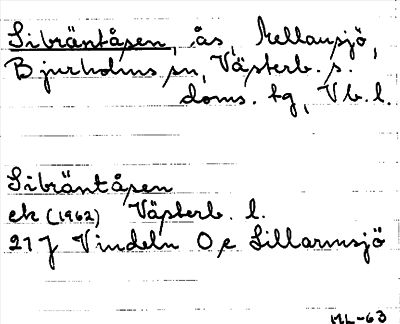 Sibräntåsen, ås, Mellansjö,
Bjurholms sn, Västerb. s.
doms. tg, Vb. l.
Sibräntåsen
ek (1962) Västerb. l.
21 J Vindeln O,c Lillarmsjö
ML-63